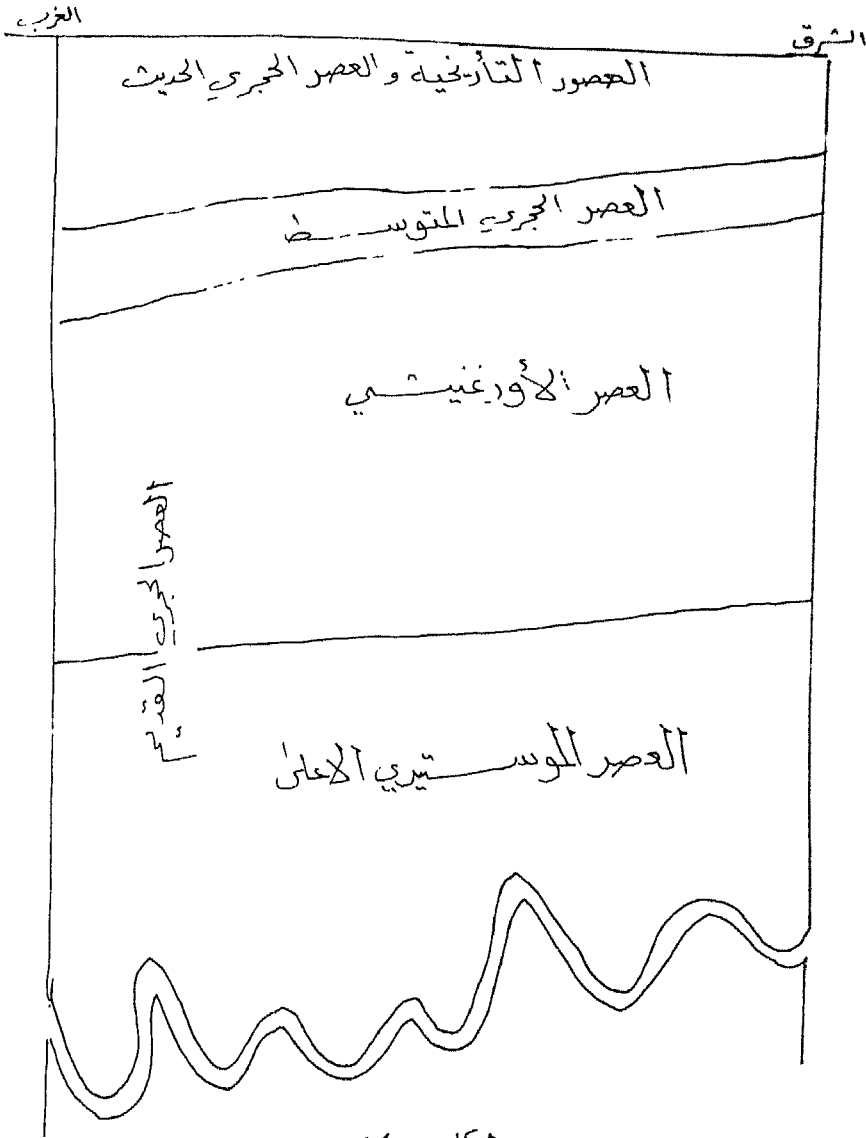 الغرب
الشرق
العصور التأريخية والعصر الحجري الحديث
العصر الحجري المتوسط
العصر الأورغنيشي
العصر الحجري القديم
العصر الموستيري الاعلى